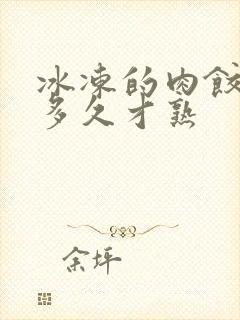 冰凍的肉餃
多久才熟
余坪